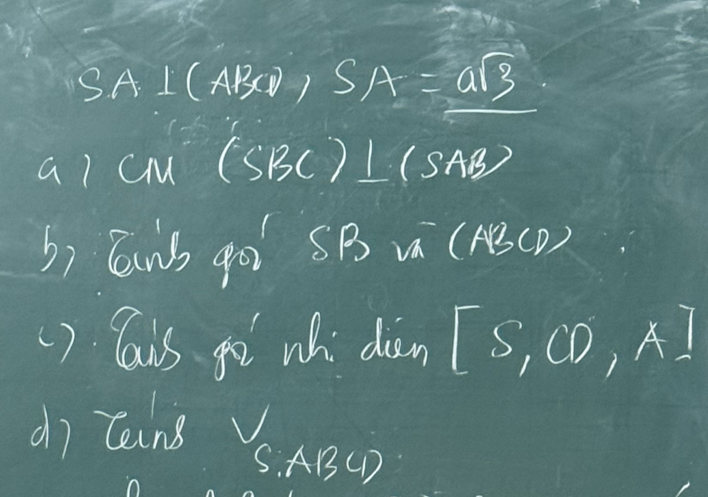 SA ⊥ (ABCD), SA = a√3
a) CM (SBC) ⊥ (SAB)
b) Tính góc SB và (ABCD)
c) Tính góc nhị diện [S, CD, A]
d) Tính V S.ABCD